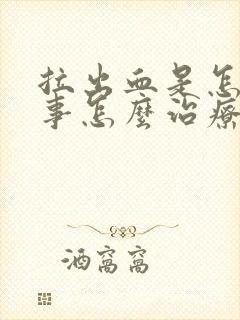 拉出血是怎
事怎麼治療
酒窩窩